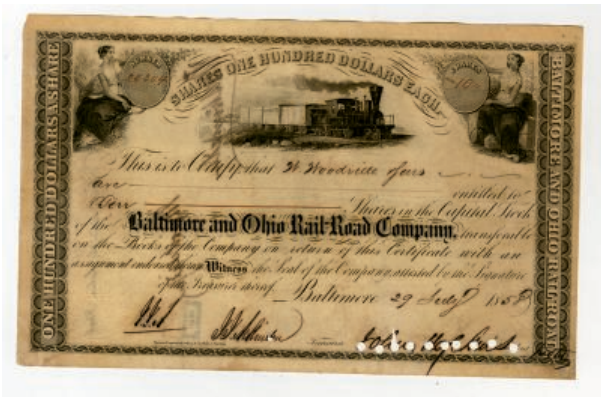 SHARES ONE HUNDRED DOLLARS EACH.
SHARES
SHARES
10
ONE HUNDRED DOLLARS A SHARE
BALTIMORE AND OHIO RAILROAD
This is to Certify that W Woodville
are entitled to
Shares in the Capital Stock
of the Baltimore and Ohio Rail-Road Company, transferable
on the Books of the Company on return of this Certificate with an
assignment endorsed thereon Witness the Seal of the Company attested by the Signature
of the Treasurer thereof. Baltimore 29 July 1858